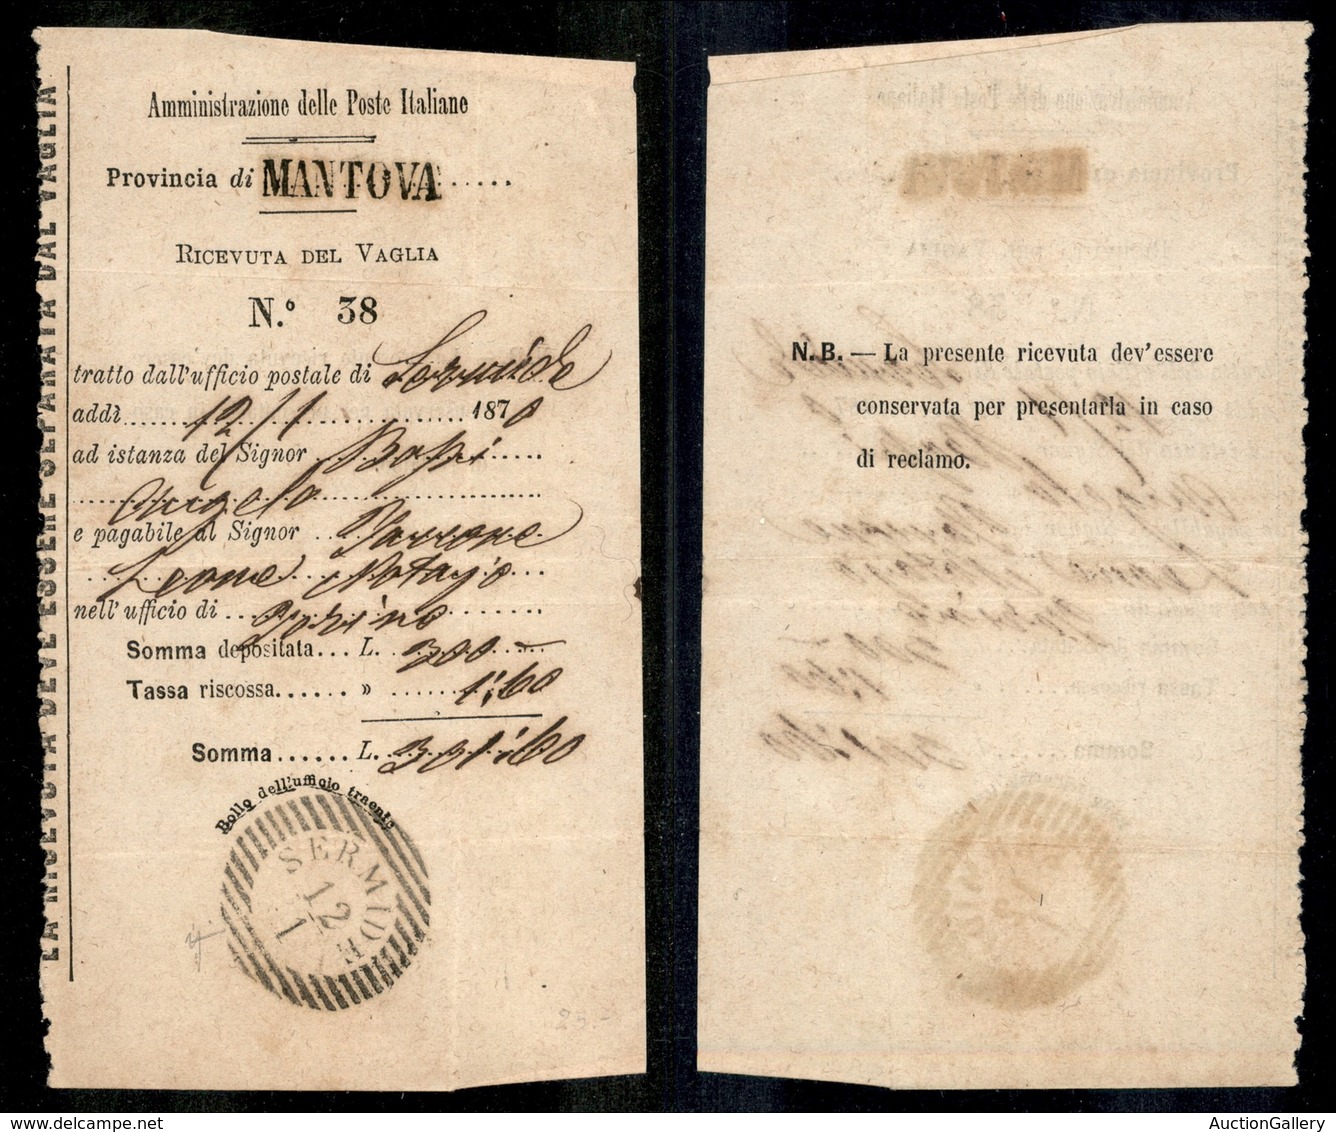 Amministrazione delle Poste Italiane
Provincia di MANTOVA
RICEVUTA DEL VAGLIA
N.º 38
tratto dall'ufficio postale di Sermide
addì 12/1 1870
ad istanza del Signor
Angelo
e pagabile al Signor
Leone Notajo
nell'ufficio di Torino
Somma depositata... L. 300 —
Tassa riscossa...... » 1:60
Somma...... L. 301:60
Bollo dell'ufficio traente
SERMIDE
12
1
LA RICEVUTA DEVE ESSERE SEPARATA DAL VAGLIA
25.-
N.B. — La presente ricevuta dev'essere
conservata per presentarla in caso
di reclamo.
AuctionGallery